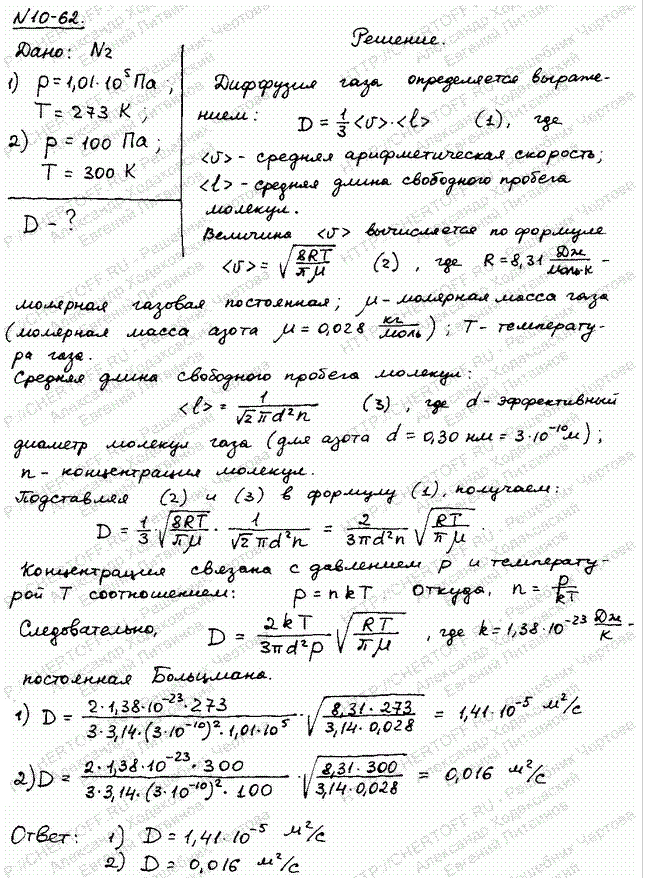 N10-62.
Решение.
Дано: N₂
1) p = 1,01·10⁵ Па ;
T = 273 К ;
2) p = 100 Па ;
T = 300 К
D - ?
Диффузия газа определяется выраже-
нием: D = 1/3 <υ>·<l> (1), где
<υ> - средняя арифметическая скорость;
<l> - средняя длина свободного пробега
молекул.
Величина <υ> вычисляется по формуле
<υ> = √(8RT/πμ) (2), где R = 8,31 Дж/моль·К -
молярная газовая постоянная; μ - молярная масса газа
(молярная масса азота μ = 0,028 кг/моль); T - температу-
ра газа.
Средняя длина свободного пробега молекул:
<l> = 1/(√2 πd²n) (3), где d - эффективный
диаметр молекул газа (для азота d = 0,30 нм = 3·10⁻¹⁰ м);
n - концентрация молекул.
Подставляя (2) и (3) в формулу (1), получаем:
D = 1/3 · √(8RT/πμ) · 1/(√2 πd²n) = 2/(3πd²n) √(RT/πμ).
Концентрация связана с давлением p и температу-
рой T соотношением: p = nkT. Откуда, n = p/kT
Следовательно, D = 2kT/(3πd²p) √(RT/πμ), где k = 1,38·10⁻²³ Дж/К -
постоянная Больцмана.
1) D = 2·1,38·10⁻²³·273/(3·3,14·(3·10⁻¹⁰)²·1,01·10⁵) · √(8,31·273/(3,14·0,028)) = 1,41·10⁻⁵ м²/с
2) D = 2·1,38·10⁻²³·300/(3·3,14·(3·10⁻¹⁰)²·100) · √(8,31·300/(3,14·0,028)) = 0,016 м²/с
Ответ: 1) D = 1,41·10⁻⁵ м²/с
2) D = 0,016 м²/с
HTTP://CHERTOFF.RU - Решебник Чертова
Александр Ходаковский
Евгений Литвинов